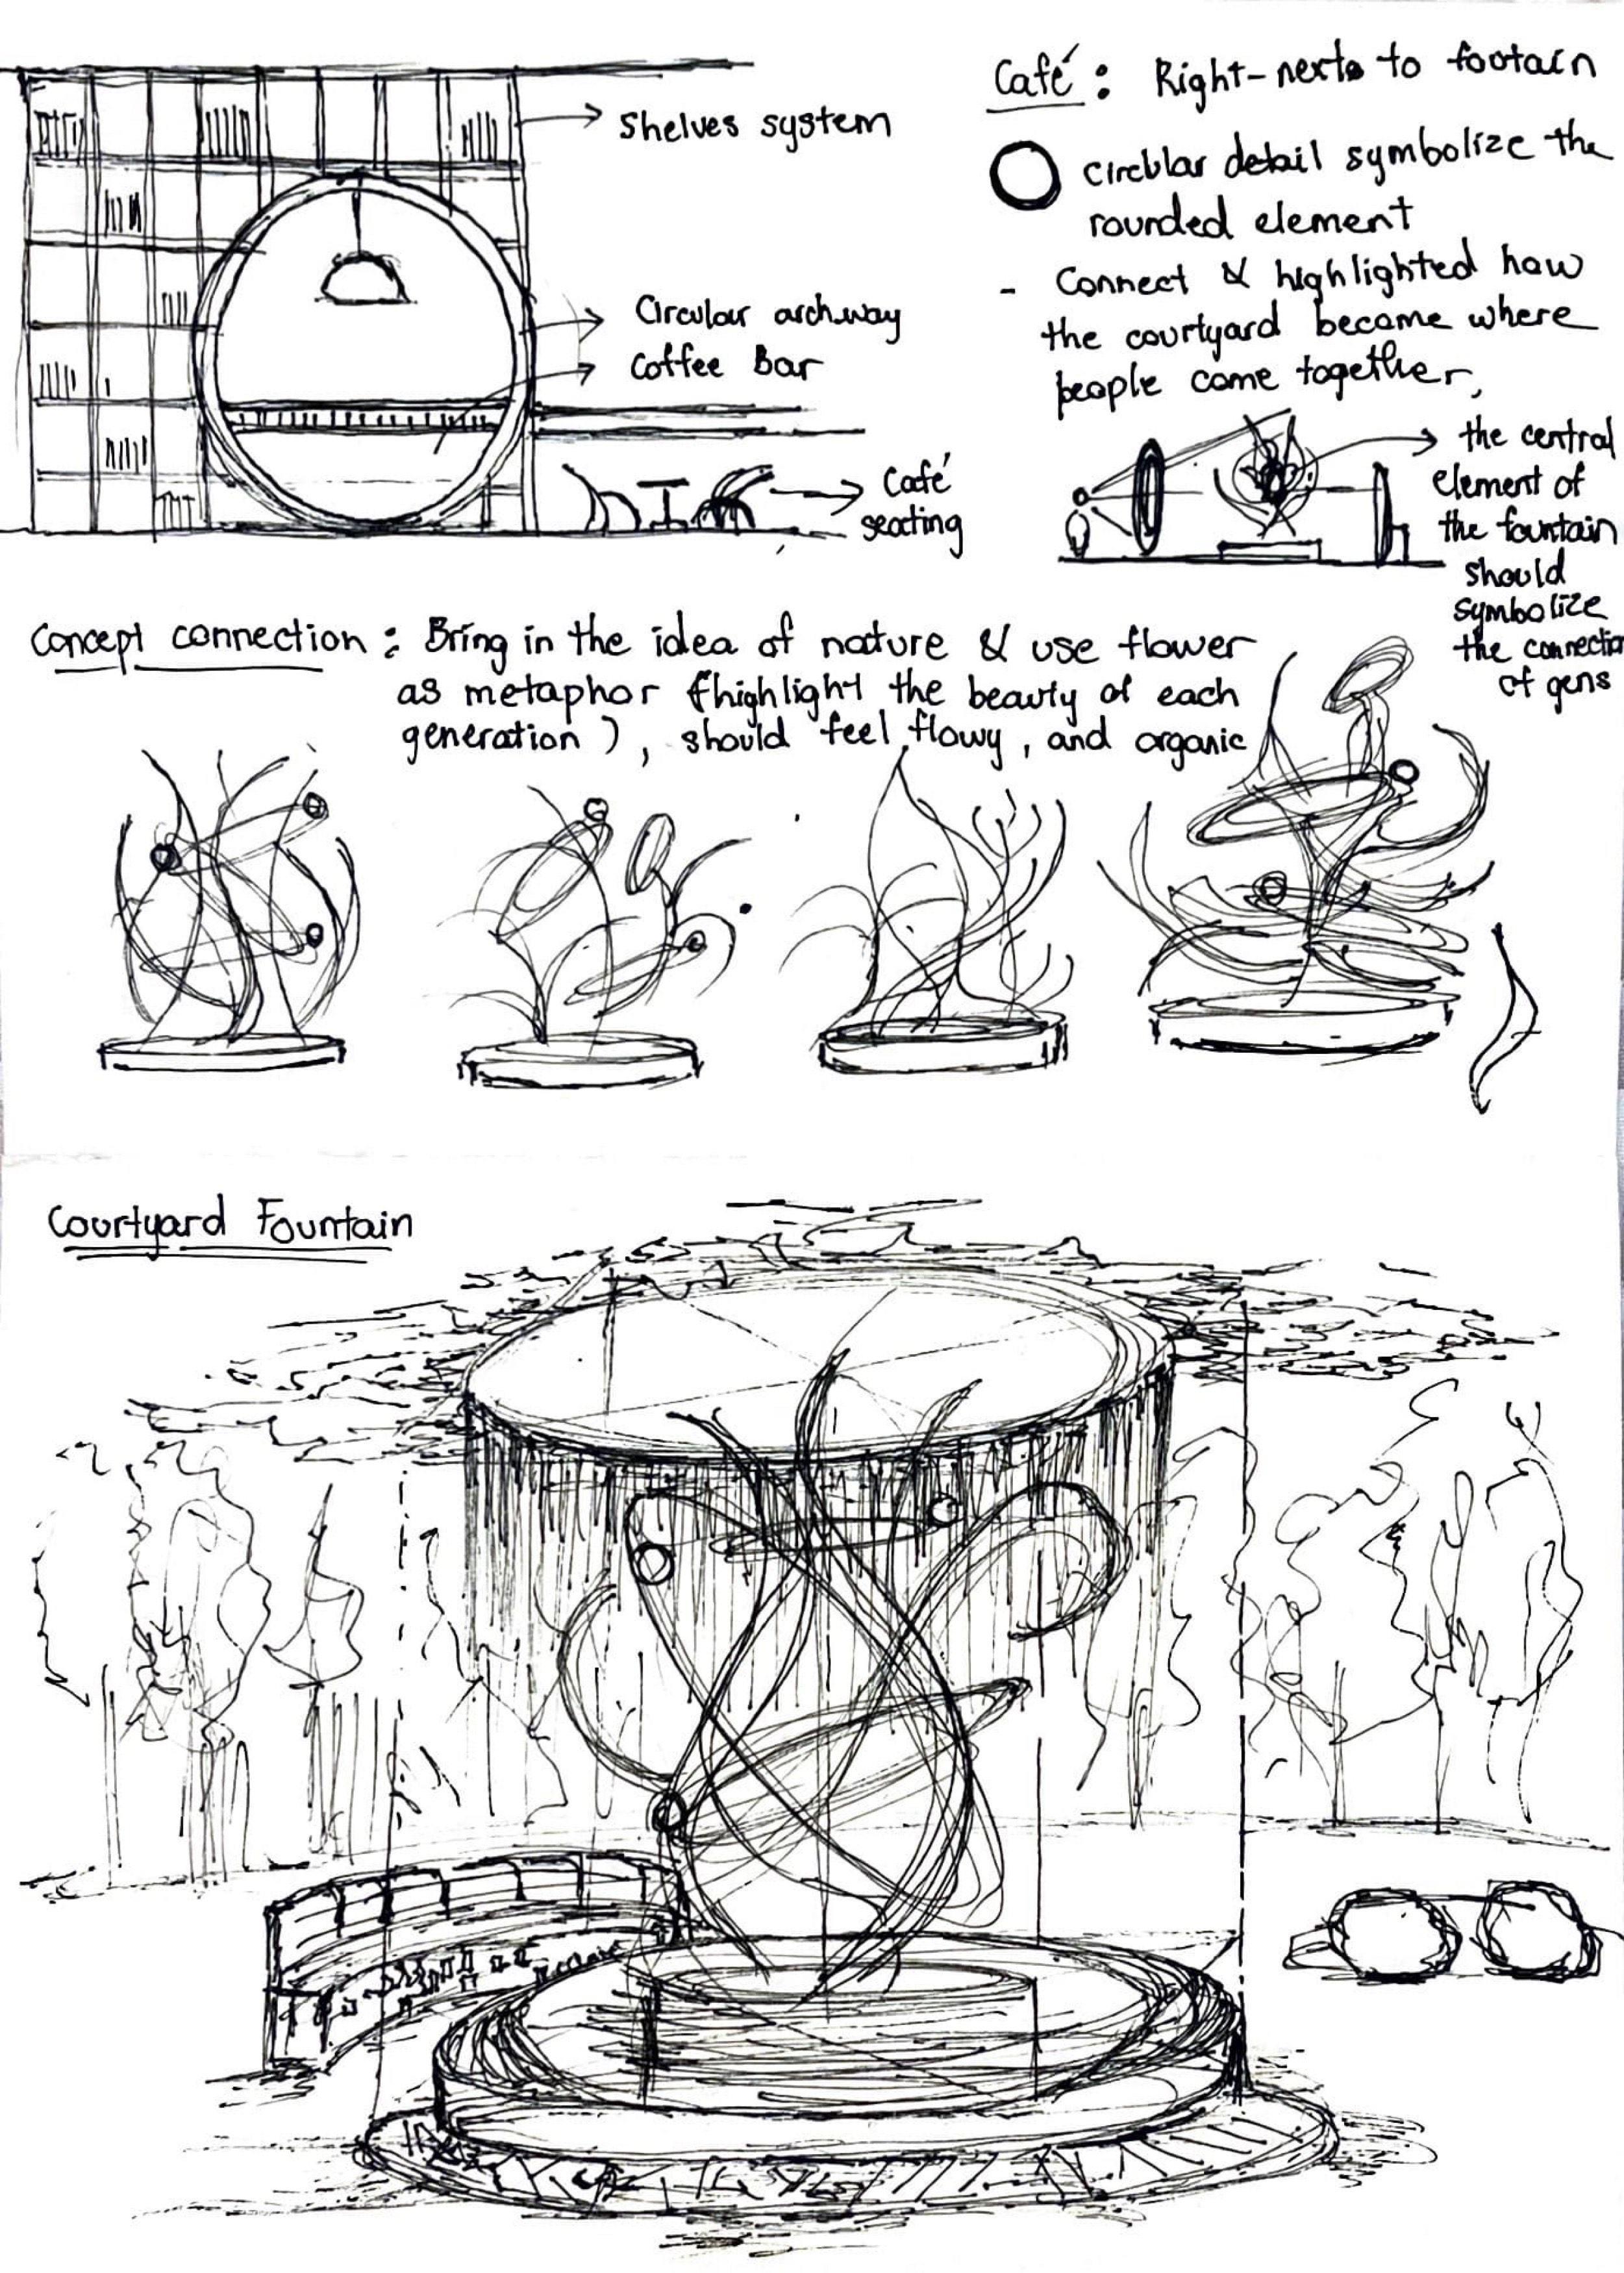 Shelves system
Circular archway
Coffee Bar
Café seating
Café : Right-next to footain
circular detail symbolize the
rounded element
- Connect & highlighted how
the courtyard became where
people come together,
the central
element of
the fountain
should
symbolize
the connectio
of gens
Concept connection : Bring in the idea of nature & use flower
as metaphor (highlight the beauty of each
generation ) , should feel flowy, and organic
Courtyard Fountain